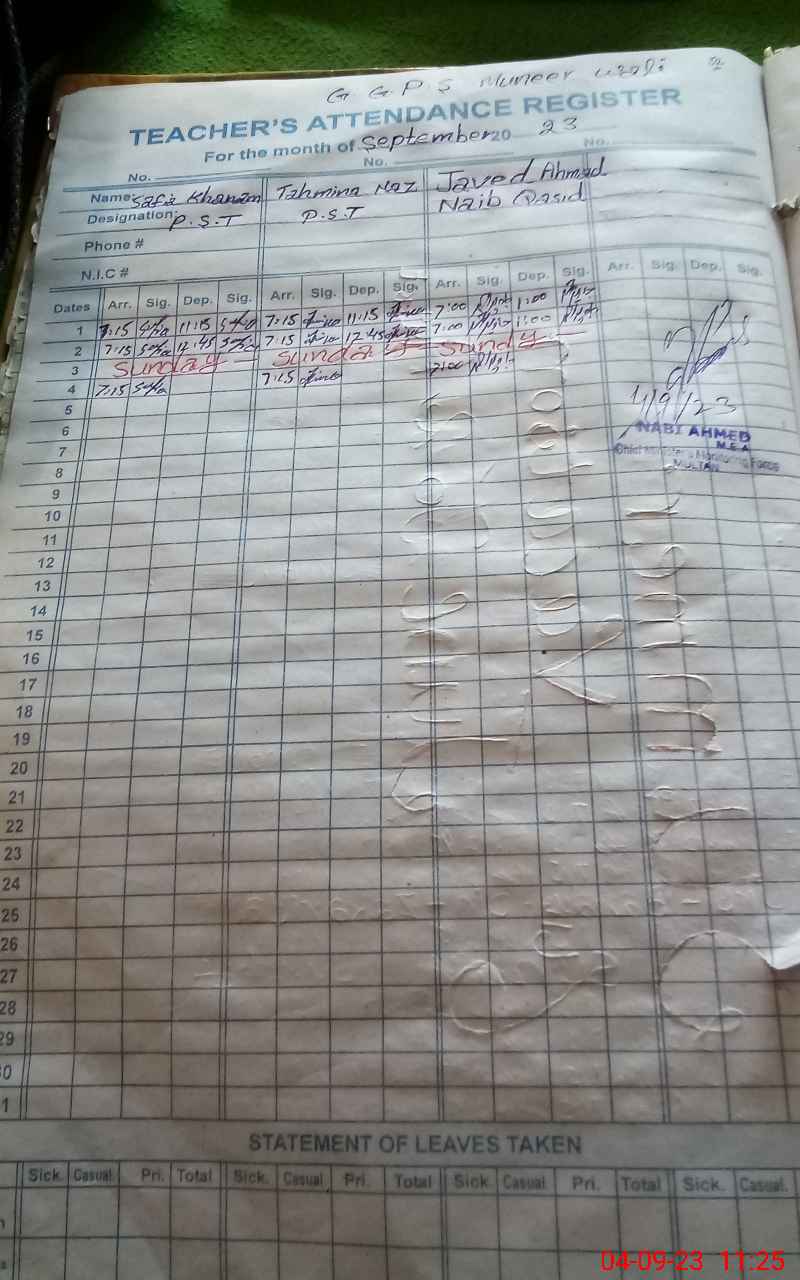 G G P S Muneer
TEACHER'S ATTENDANCE REGISTER
For the month of September 20 23
No. No. No.
Name: Safia Khanam Tahmina Naz Javed Ahmad
Designation: P.S.T P.S.T Naib Qasid
Phone #
N.I.C #
Dates Arr. Sig. Dep. Sig. Arr. Sig. Dep. Sig. Arr. Sig. Dep. Sig. Arr. Sig. Dep. Sig.
1 7:15 11:15 7:15 11:15 7:00 1:00
2 7:15 12:45 7:15 12:45 7:00 1:00
3 Sunday Sunday Sunday
4 7:15 7:15 7:00
5
6
7
8
9
10
11
12
13
14
15
16
17
18
19
20
21
22
23
24
25
26
27
28
29
0
1
4/9/23
NABI AHMED
M.E.A
Chief Minister's Monitoring Force
MULTAN
STATEMENT OF LEAVES TAKEN
Sick. Casual. Pri. Total Sick. Casual Pri. Total Sick. Casual. Pri. Total Sick. Casual.
04-09-23 11:25